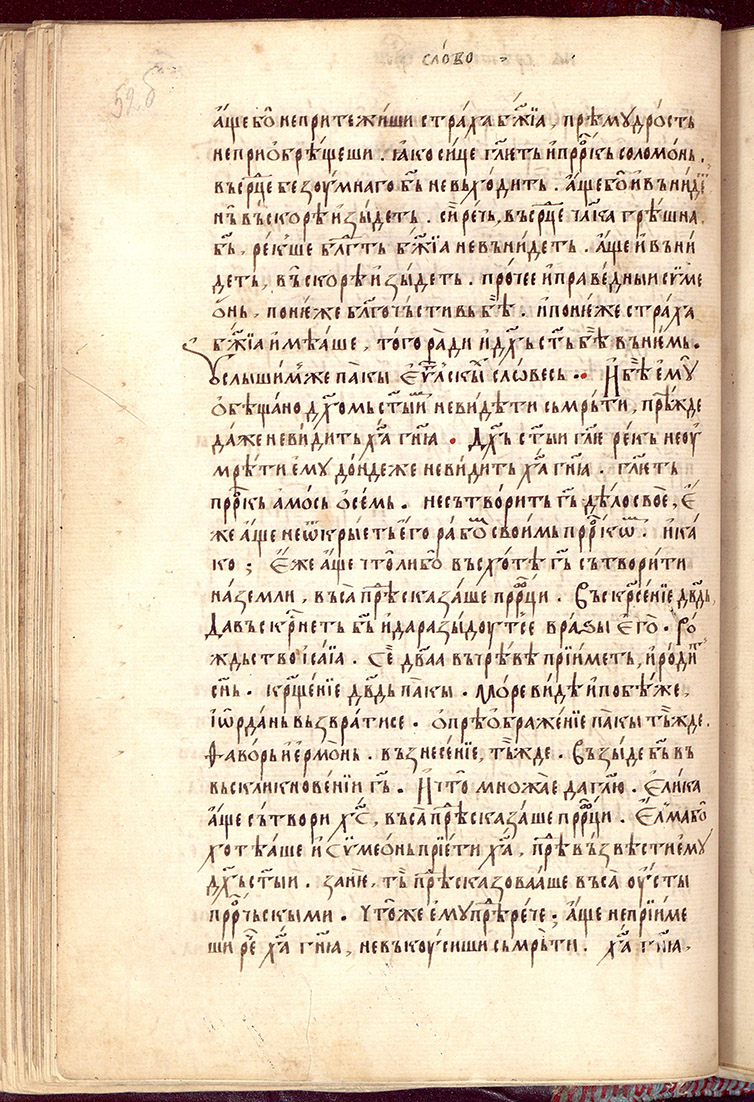 слово
52 б
а҆ще бо̀ непритежи́ши стра́ха бж҃їа, прѣмꙋ́дрость
неприѡбрѣ́щеши. ꙗ҆ко си́це гл҃еть и҆ прⷪ҇ркь соломо́нь.
вь срⷣце безꙋ́мнаго бь҃ не въхо́дить. а҆ще бо̀ и҆ вьни́де
нь̀ въско́рѣ и҆зы́деть. си́ рѣчь, въ срⷣце чл҃ка грѣ́шна.
бь҃, ре́кше блгⷣть бж҃їа не въни́деть. а҆ще и҆ въни́
деть, нь̀ ско́рѣ и҆зы́деть. про́чее и҆ пра́ведныи сѷме
ѡ́нь, поне́же бл҃гоч͡ьстивь бѣ̀. и҆ поне́же стра́ха
бж҃їа и҆мѣ́аше, того̀ ра́ди и҆ дх҃ь ст҃ь бѣ̀ въ не́мь.
Оу҆слы́шимже па́кы еѵⷢ҇лскыⷯ слове́сь. И҆ бѣ̀ е҆мꙋ̀
ѻ҆бѣща́но дх҃омь ст҃ы́иⷨ не ви́дѣти сьмрь́ти, прѣ́жде
да́же не ви́дить хⷭ҇а гн҃ꙗ. Дх҃ь ст҃ы́и гл҃ю ре́кь не оу҆
мрѣ́ти е҆мꙋ̀ до́ндеже не ви́дить хⷭ҇а гн҃ꙗ. гл҃еть
прⷪ҇ркь а҆мо́сь ѻ҆ се́мь. не сътвори́ть гь҃ дѣ́ло своѐ, є҆́
же а҆ще не ѿкры́еть є҆го̀ рабѡⷨ свои́мь прⷪ҇ркѡⷨ. и҆ ка́
ко; Є҆́же а҆ще что̀ либо̀ въсхотѣ̀ гь҃ сътвори́ти
на землѝ, въса̀ прѣⷣсказа́ше прⷪ҇рци. Въскрⷭ҇е́нїе дв҃дь,
Да въскрⷭ҇неть бь҃ и҆ да разы́дꙋтсе вра́ѕы є҆го̀. Рѡ́
ждьство і҆са́їа. Сѐ дв҃аа въ трѣ́вѣ прїи́меть, и҆ роди́ть
сн҃ь. кр҃ще́нїе дв҃дь па́кы. Мо́ре ви́дѣ и҆ побѣ́же,
і҆ѡрда́нь възврати́се. ѻ҆ прѣѡбраже́нїе па́кы тъ́жде.
Ѳаво́рь и҆ е҆рмо́нь. възнесе́нїе, тъ́жде. Възы́де бь҃ въ
въскликнове́нїи гь҃. И҆ что̀ мно́жае да гл҃ю. Є҆ли́ка
а҆ще сътворѝ хⷭ҇, въса̀ прѣⷣсказа́ше прⷪ҇рци. Є҆лма́бо̀
хотѣ́аше и҆ Сѷмеѡ́нь прїе́ти хⷭ҇а, прѣⷣвъзвѣстѝ е҆мꙋ̀
дх҃ь ст҃ы́и. занѐ, ть̀ прѣⷣсказова́аше въса̀ оу҆сты̀
прⷪ҇рчьскыми. Что́же е҆мꙋ̀ прѣⷣре́че; а҆ще не прїи́ме
ши рⷱ҇е хⷭ҇а гн҃ꙗ, не въкꙋ́сиши сьмрь́ти. хⷭ҇а гн҃ꙗ,